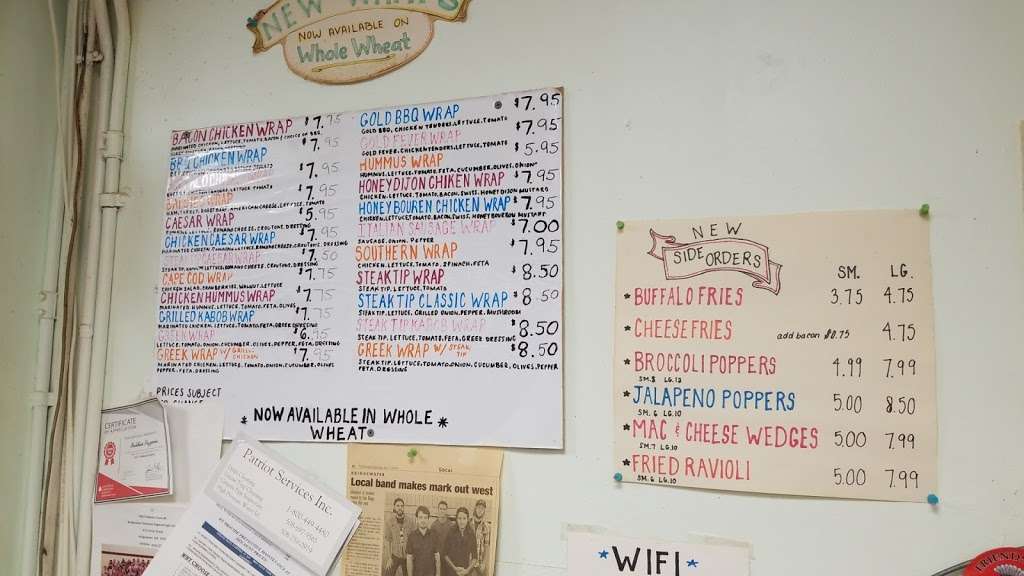 NEW WRAPS
NOW AVAILABLE ON
Whole Wheat
BACON CHICKEN WRAP $7.75
BBQ CHICKEN WRAP 7.95
7.95
7.95
CAESAR WRAP $5.95
CHICKEN CAESAR WRAP 7.95
STEAK TIP CAESAR WRAP 7.50
STEAK TIP, LETTUCE, ROMANO CHEESE, CROUTONS, DRESSING
CAPE COD WRAP 7.75
CHICKEN SALAD, CRANBERRIES, WALNUT, LETTUCE
CHICKEN HUMMUS WRAP $7.75
GRILLED KABOB WRAP 7.75
MARINATED CHICKEN, LETTUCE, TOMATO, FETA, GREEK DRESSING
GREEK WRAP $6.95
LETTUCE, TOMATO, ONION, CUCUMBER, OLIVES, PEPPER, FETA, DRESSING
GREEK WRAP W/ GRILLED CHICKEN $7.95
MARINATED CHICKEN, LETTUCE, TOMATO, ONION, CUCUMBER, OLIVES
PEPPER, FETA, DRESSING
PRICES SUBJECT
TO CHANGE
GOLD BBQ WRAP $7.95
GOLD BBQ, CHICKEN TENDERS, LETTUCE, TOMATO
GOLD FEVER WRAP $7.95
GOLD FEVER, CHICKEN TENDERS, LETTUCE, TOMATO
HUMMUS WRAP $5.95
HUMMUS, LETTUCE, TOMATO, FETA, CUCUMBER, OLIVES, ONION
HONEY DIJON CHIKEN WRAP $7.95
CHICKEN, LETTUCE, TOMATO, BACON, SWISS, HONEY DIJON MUSTARD
HONEY BOUREN CHIKEN WRAP $7.95
CHICKEN, LETTUCE, TOMATO, BACON, SWISS, HONEY BOURBON MUSTARD
ITALIAN SAUSAGE WRAP $7.00
SAUSAGE, ONION, PEPPER
SOUTHERN WRAP $7.95
CHICKEN, LETTUCE, TOMATO, SPINACH, FETA
STEAK TIP WRAP $8.50
STEAK TIP, LETTUCE, TOMATO
STEAK TIP CLASSIC WRAP $8.50
STEAK TIP, LETTUCE, GRILLED ONION, PEPPER, MUSHROOM
STEAK TIP KABOB WRAP $8.50
STEAK TIP, LETTUCE, TOMATO, FETA, GREEK DRESSING
GREEK WRAP W/ STEAK TIP $8.50
STEAK TIP, LETTUCE, TOMATO, ONION, CUCUMBER, OLIVES, PEPPER
FETA, DRESSING
* NOW AVAILABLE IN WHOLE *
WHEAT
NEW
SIDE ORDERS
SM. LG.
* BUFFALO FRIES 3.75 4.75
* CHEESE FRIES add bacon $0.75 4.75
* BROCCOLI POPPERS 4.99 7.99
SM. 8 LG. 12
* JALAPENO POPPERS 5.00 8.50
SM. 6 LG. 10
* MAC & CHEESE WEDGES 5.00 7.99
SM. 7 LG. 10
* FRIED RAVIOLI 5.00 7.99
SM. 6 LG. 10
CERTIFICATE
OF APPRECIATION
Patriot Services Inc.
Local
BRIDGEWATER
Local band makes mark out west
* WIFI *
FRIENDS